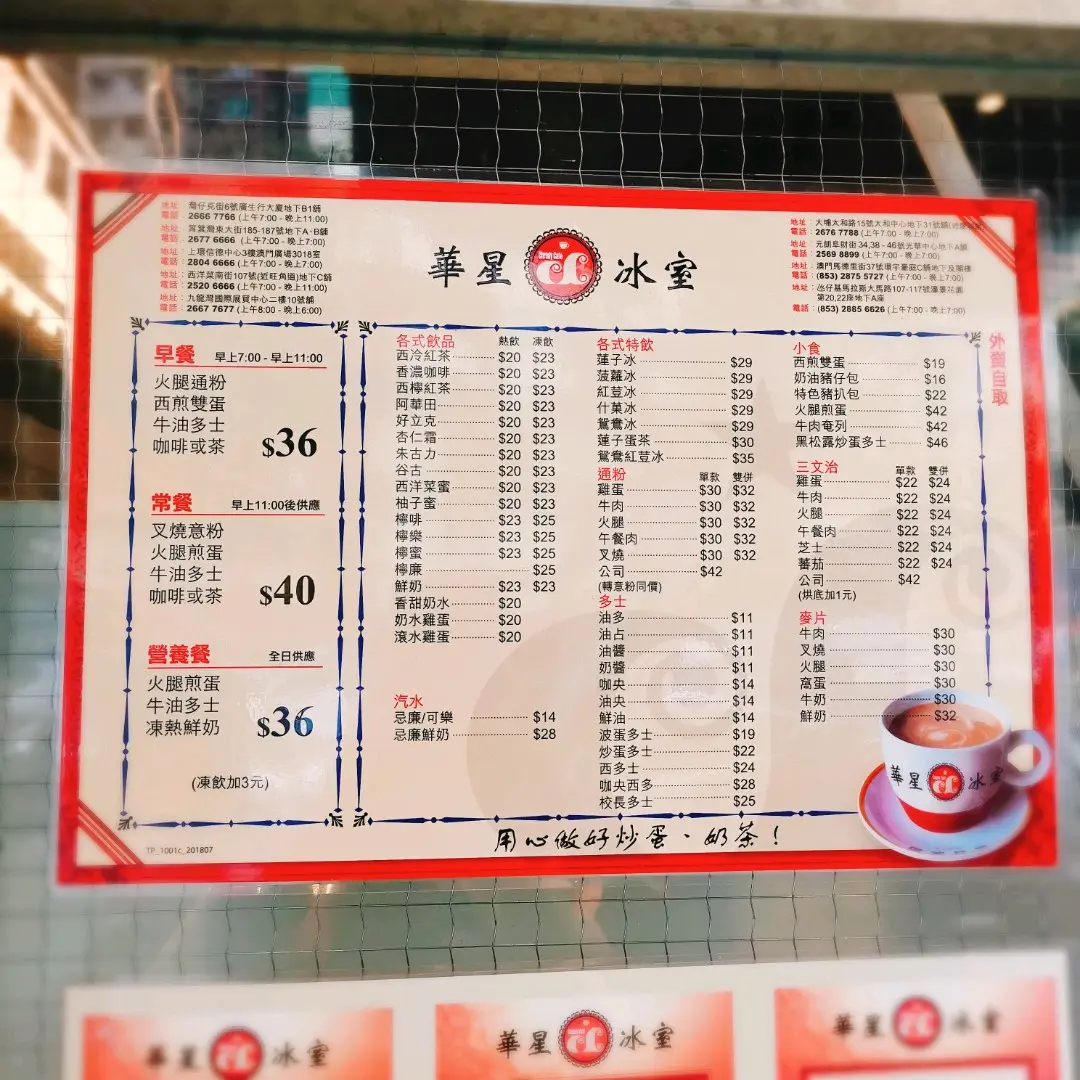 地址：灣仔克街6號廣生行大廈地下B1舖
電話：2666 7766 (上午7:00 - 晚上11:00)
地址：筲箕灣東大街185-187號地下A·B舖
電話：2677 6666 (上午7:00 - 晚上7:00)
地址：上環信德中心3樓澳門廣場3018室
電話：2804 6666 (上午7:00 - 晚上7:00)
地址：西洋菜南街107號(近旺角道)地下C舖
電話：2520 6666 (上午7:00 - 晚上11:00)
地址：九龍灣國際展貿中心二樓10號舖
電話：2667 7677 (上午8:00 - 晚上6:00)
華星 冰室
地址：大埔太和路15號太和中心地下31號舖
電話：2676 7788 (上午7:00 - 晚上7:00)
地址：元朗阜財街34,38 - 46號光華中心地下A舖
電話：2569 8899 (上午7:00 - 晚上7:00)
地址：澳門馬德里街37號環宇豪庭C舖地下及閣樓
電話：(853) 2875 5727 (上午7:30 - 晚上7:30)
地址：氹仔基馬拉斯大馬路107-117號濠景花園
第20,22座地下A座
電話：(853) 2885 6626 (上午7:00 - 晚上7:00)
外賣自取
早餐 早上7:00 - 早上11:00
火腿通粉
西煎雙蛋
牛油多士
咖啡或茶 $36
常餐 早上11:00後供應
叉燒意粉
火腿煎蛋
牛油多士
咖啡或茶 $40
營養餐 全日供應
火腿煎蛋
牛油多士
凍熱鮮奶 $36
(凍飲加3元)
各式飲品 熱飲 凍飲
西冷紅茶 $20 $23
香濃咖啡 $20 $23
西檸紅茶 $20 $23
阿華田 $20 $23
好立克 $20 $23
杏仁霜 $20 $23
朱古力 $20 $23
谷古 $20 $23
西洋菜蜜 $20 $23
柚子蜜 $20 $23
檸啡 $23 $25
檸樂 $23 $25
檸蜜 $23 $25
檸廉 $25
鮮奶 $23 $23
香甜奶水 $20
奶水雞蛋 $20
滾水雞蛋 $20
汽水
忌廉/可樂 $14
忌廉鮮奶 $28
各式特飲
蓮子冰 $29
菠蘿冰 $29
紅荳冰 $29
什菓冰 $29
鴛鴦冰 $29
蓮子蛋茶 $30
鴛鴦紅荳冰 $35
通粉 單款 雙併
雞蛋 $30 $32
牛肉 $30 $32
火腿 $30 $32
午餐肉 $30 $32
叉燒 $30 $32
公司 $42
(轉意粉同價)
多士
油多 $11
油占 $11
油醬 $11
奶醬 $11
咖央 $14
油央 $14
鮮油 $14
波蛋多士 $19
炒蛋多士 $22
西多士 $24
咖央西多 $28
校長多士 $25
小食
西煎雙蛋 $19
奶油豬仔包 $16
特色豬扒包 $22
火腿煎蛋 $42
牛肉奄列 $42
黑松露炒蛋多士 $46
三文治 單款 雙併
雞蛋 $22 $24
牛肉 $22 $24
火腿 $22 $24
午餐肉 $22 $24
芝士 $22 $24
蕃茄 $22 $24
公司 $42
(烘底加1元)
麥片
牛肉 $30
叉燒 $30
火腿 $30
窩蛋 $30
牛奶 $30
鮮奶 $32
華星 冰室
用心做好炒蛋、奶茶！
TP_1001c_201807
華星 冰室
華星 冰室
華星 冰室